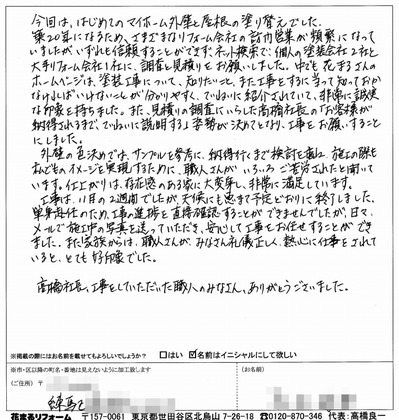 今回は、はじめてのマイホーム外壁と屋根の塗り替えでした。
築20年になるため、さまざまなリフォーム会社の訪問営業が頻繁になって
いましたがいずれも信頼することができず、ネット検索で、個人の塗装会社2社と
大手リフォーム会社1社に、調査と見積りをお願いしました。中でも花まるさんの
ホームページは、塗装工事について、知りたいこと、また工事をするに当って知っておか
なければいけないことが分かりやすく、ていねいに紹介されていて、非常に誠実
な印象を持ちました。また、見積りの調査にいらした高橋社長の「お客様が
納得されるまで、ていねいに説明する」姿勢が決めてとなり、工事をお願いすること
にしました。
外壁の色決めでは、サンプルを参考に、納得行くまで検討を重ね、施工の際も
私どものイメージを実現するために、職人さんがいろいろご苦労されたと聞いて
います。仕上がりは、存在感のある家に大変身し、非常に満足しています。
工事は、11月の2週間でしたが、天候にも恵まれ予定どおりに終了しました。
単身赴任のため、工事の進捗を直接確認することができませんでしたが、日々、
メールで施工中の写真を送っていただき、安心して工事をお任せすることができ
ました。また家族からは、職人さんが、みなさん礼儀正しく、熱心に仕事をされて
いると、とても好印象でした。
高橋社長、工事をしていただいた職人のみなさん、ありがとうございました。
※掲載の際にはお名前を載せてもよろしいでしょうか? □はい ☑名前はイニシャルにして欲しい
※市・区以降の町名・番地は見えないように加工致します
(ご住所) 〒 (お名前)
練馬区
花まるリフォーム 〒157-0061 東京都世田谷区北烏山 7-26-18 ☎0120-870-346 代表:高橋良一